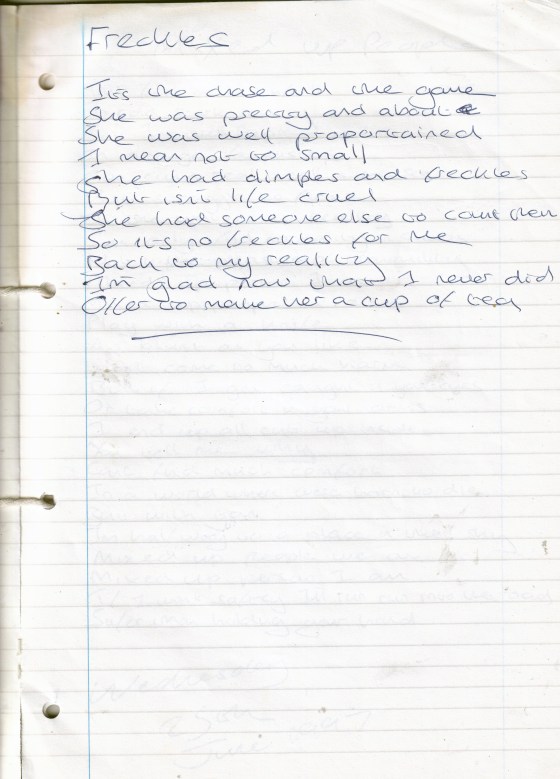 Freckles
Its the chase and the game
She was pretty and about
She was well proportained
I mean not to small
She had dimples and freckles
But isnt life cruel
She had someone else to count then
So its no freckles for me
Back to my reality
Im glad now that I never did
Offer to make her a cup of tea